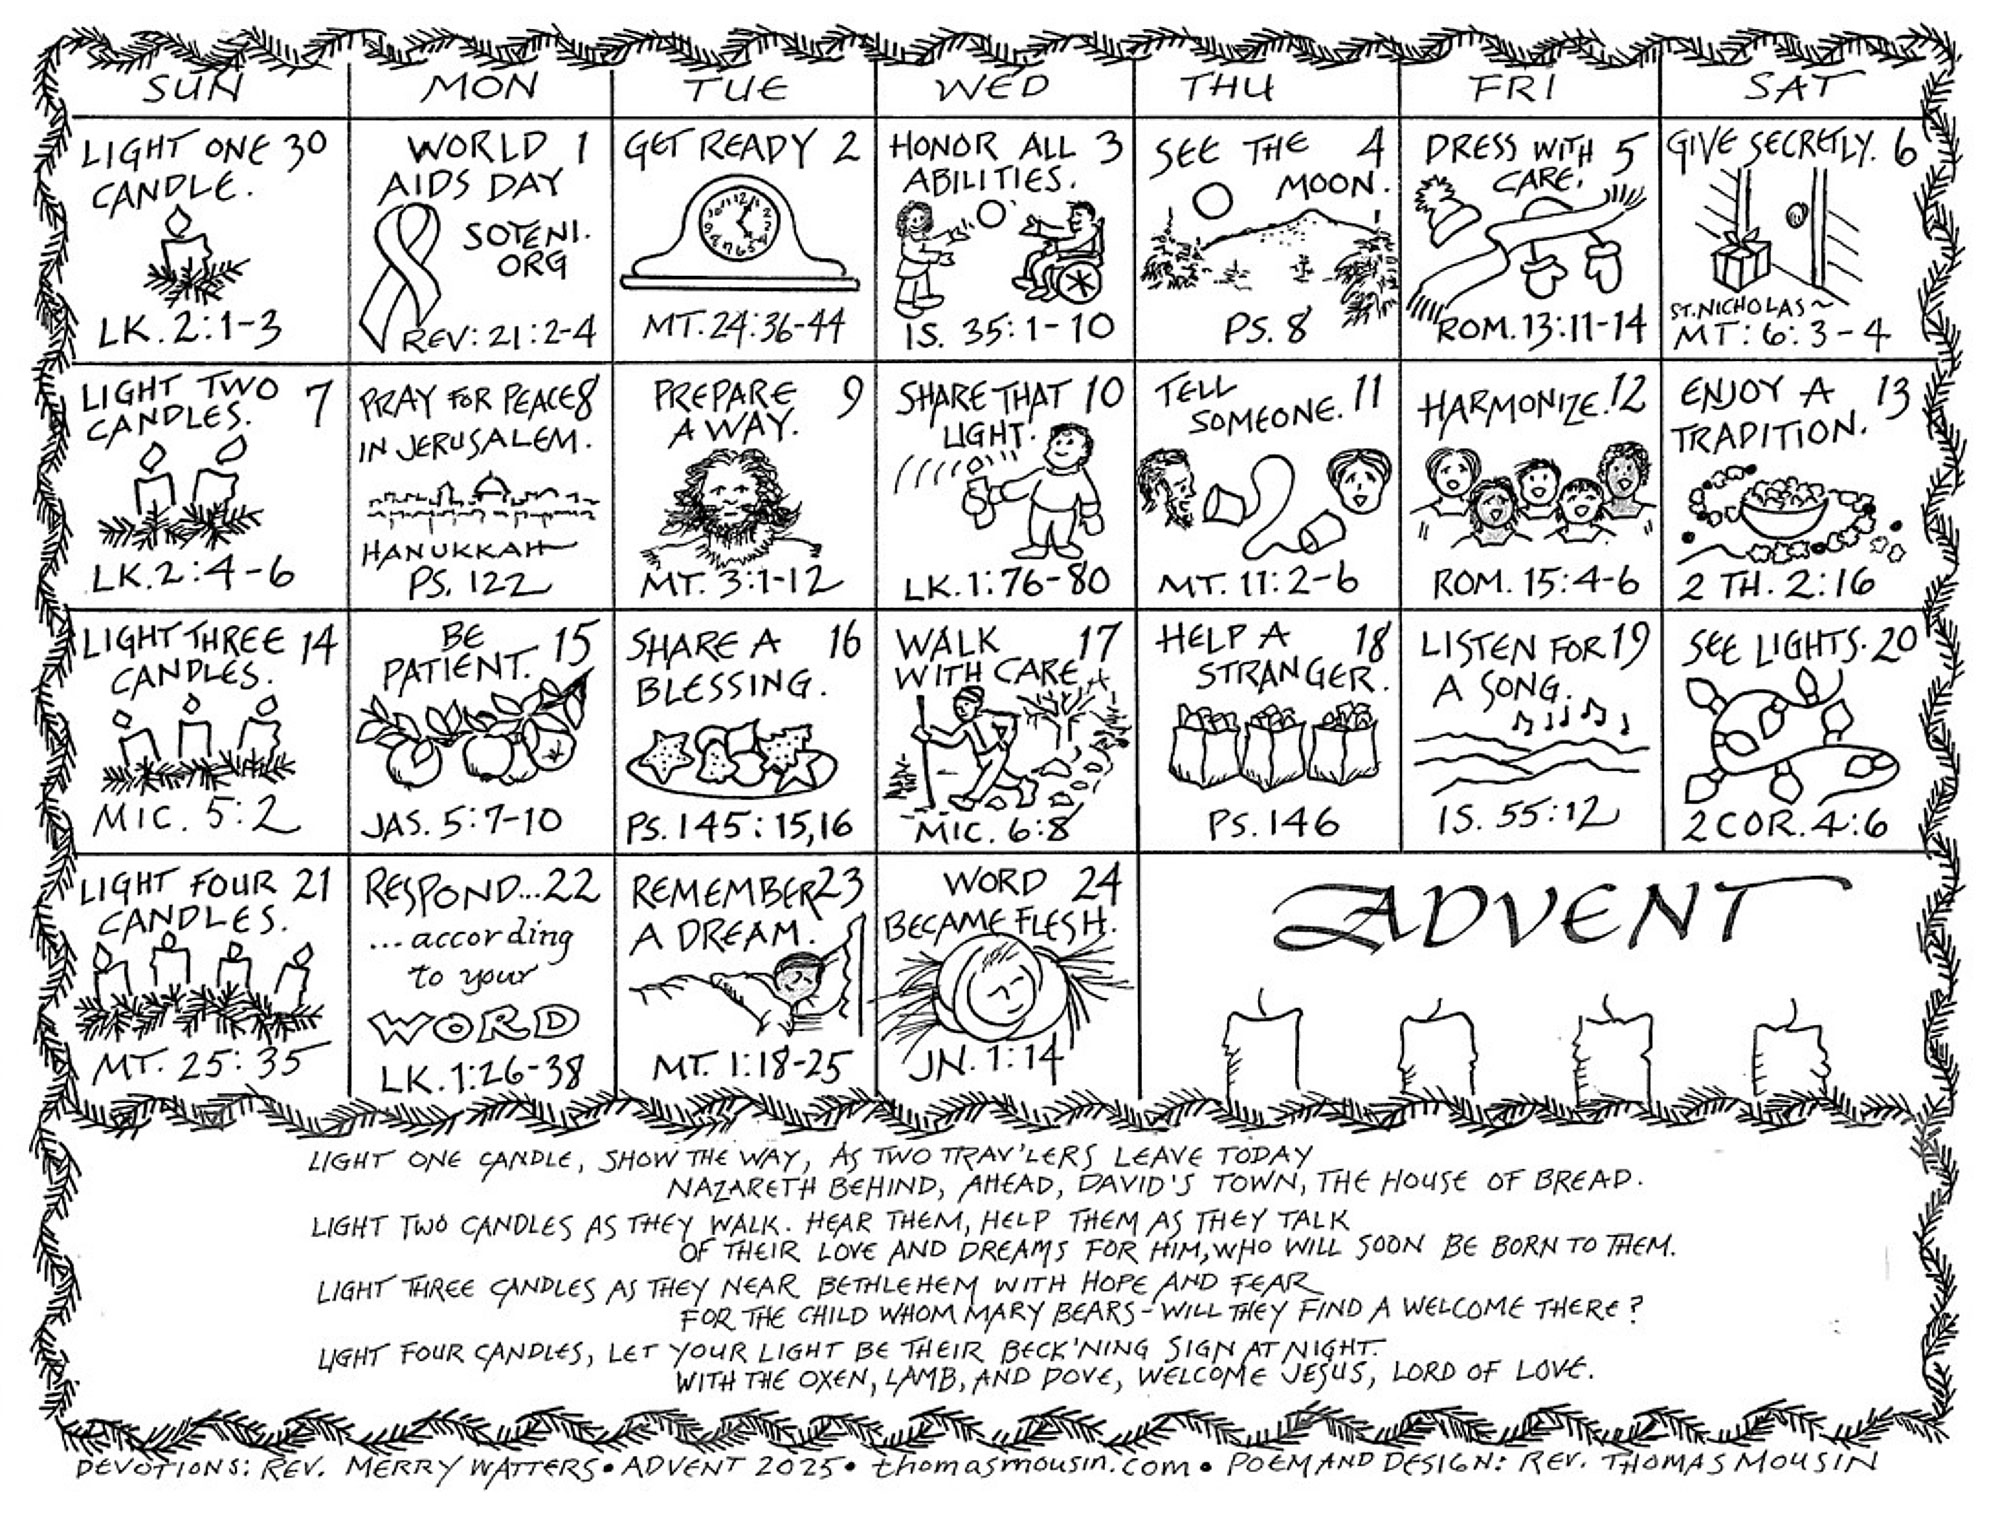 SUN MON TUE WED THU FRI SAT
LIGHT ONE 30
CANDLE.
LK. 2:1-3
WORLD 1
AIDS DAY
SOTENI.
ORG
REV: 21:2-4
GET READY 2
12 1 2 3 4 5 6 7 8 9 10 11
MT. 24:36-44
HONOR ALL 3
ABILITIES.
IS. 35:1-10
SEE THE 4
MOON.
PS. 8
DRESS WITH 5
CARE.
ROM. 13:11-14
GIVE SECRETLY. 6
ST. NICHOLAS~
MT: 6:3-4
LIGHT TWO 7
CANDLES.
LK. 2:4-6
PRAY FOR PEACE 8
IN JERUSALEM.
HANUKKAH
PS. 122
PREPARE 9
A WAY.
MT. 3:1-12
SHARE THAT 10
LIGHT.
LK. 1:76-80
TELL 11
SOMEONE.
MT. 11:2-6
HARMONIZE. 12
ROM. 15:4-6
ENJOY A 13
TRADITION.
2 TH. 2:16
LIGHT THREE 14
CANDLES.
MIC. 5:2
BE 15
PATIENT.
JAS. 5:7-10
SHARE A 16
BLESSING.
PS. 145:15,16
WALK 17
WITH CARE.
MIC. 6:8
HELP A 18
STRANGER.
PS. 146
LISTEN FOR 19
A SONG.
IS. 55:12
SEE LIGHTS. 20
2 COR. 4:6
LIGHT FOUR 21
CANDLES.
MT. 25:35
RESPOND... 22
...according
to your
WORD
LK. 1:26-38
REMEMBER 23
A DREAM.
MT. 1:18-25
WORD 24
BECAME FLESH.
JN. 1:14
ADVENT
LIGHT ONE CANDLE, SHOW THE WAY, AS TWO TRAV'LERS LEAVE TODAY
NAZARETH BEHIND, AHEAD, DAVID'S TOWN, THE HOUSE OF BREAD.
LIGHT TWO CANDLES AS THEY WALK. HEAR THEM, HELP THEM AS THEY TALK
OF THEIR LOVE AND DREAMS FOR HIM, WHO WILL SOON BE BORN TO THEM.
LIGHT THREE CANDLES AS THEY NEAR BETHLEHEM WITH HOPE AND FEAR
FOR THE CHILD WHOM MARY BEARS - WILL THEY FIND A WELCOME THERE?
LIGHT FOUR CANDLES, LET YOUR LIGHT BE THEIR BECK'NING SIGN AT NIGHT.
WITH THE OXEN, LAMB, AND DOVE, WELCOME JESUS, LORD OF LOVE.
DEVOTIONS: REV. MERRY WATTERS • ADVENT 2025 • thomasmousin.com • POEM AND DESIGN: REV. THOMAS MOUSIN